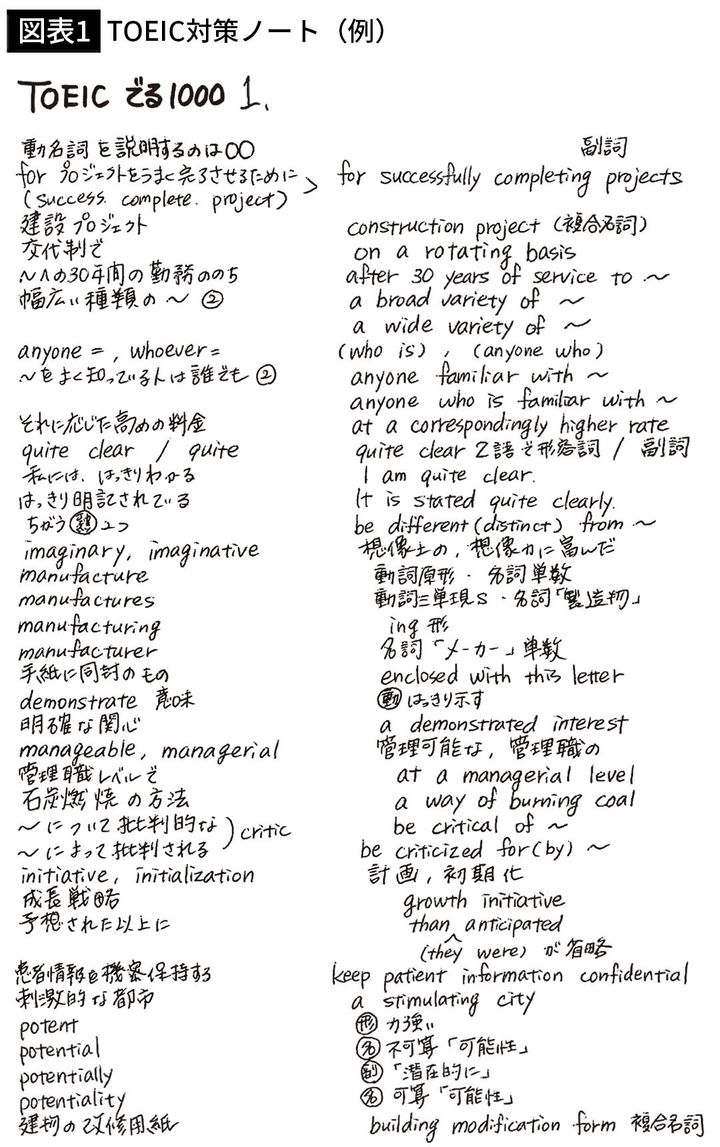 図表1 TOEIC対策ノート（例）
TOEIC でる1000 1.
動名詞を説明するのは〇〇 副詞
for プロジェクトをうまく完了させるために > for successfully completing projects
(success. complete. project)
建設プロジェクト construction project (複合名詞)
交代制で on a rotating basis
～への30年間の勤務ののち after 30 years of service to ～
幅広い種類の～ ② a broad variety of ～
a wide variety of ～
anyone = , whoever = (who is) , (anyone who)
～をよく知っている人は誰でも ② anyone familiar with ～
anyone who is familiar with ～
それに応じた高めの料金 at a correspondingly higher rate
quite clear / quite quite clear 2語で形容詞 / 副詞
私には、はっきりわかる I am quite clear.
はっきり明記されている It is stated quite clearly.
ちがう 2つ be different (distinct) from ～
imaginary, imaginative 想像上の, 想像力に富んだ
manufacture 動詞原形・名詞単数
manufactures 動詞三単現s・名詞「製造物」
manufacturing ing形
manufacturer 名詞「メーカー」単数
手紙に同封のもの enclosed with this letter
demonstrate 意味 動 はっきり示す
明確な関心 a demonstrated interest
manageable, managerial 管理可能な, 管理職の
管理職レベルで at a managerial level
石炭燃焼の方法 a way of burning coal
～について批判的な ) critic be critical of ～
～によって批判される be criticized for (by) ～
initiative, initialization 計画, 初期化
成長戦略 growth initiative
予想された以上に than anticipated
(they were) が省略
患者情報を機密保持する keep patient information confidential
刺激的な都市 a stimulating city
potent 形 力強い
potential 名 不可算「可能性」
potentially 副「潜在的に」
potentiality 名 可算「可能性」
建物の改修用紙 building modification form 複合名詞